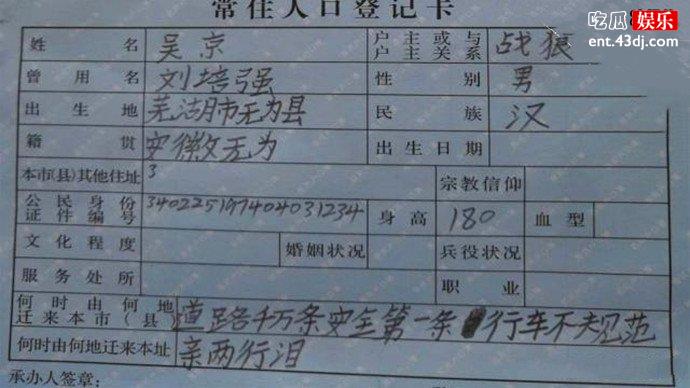 常住人口登记卡
吃瓜 娱乐
ent.43dj.com
姓名 吴京 户主或与户主关系 战狼
曾用名 刘培强 性别 男
出生地 芜湖市无为县 民族 汉
籍贯 安徽无为 出生日期
本市(县)其他住址 3 宗教信仰
公民身份证件编号 340225197404031234 身高 180 血型
文化程度 婚姻状况 兵役状况
服务处所 职业
何时由何地迁来本市(县) 道路千万条安全第一条 行车不规范
何时由何地迁来本址 亲两行泪
承办人签章：